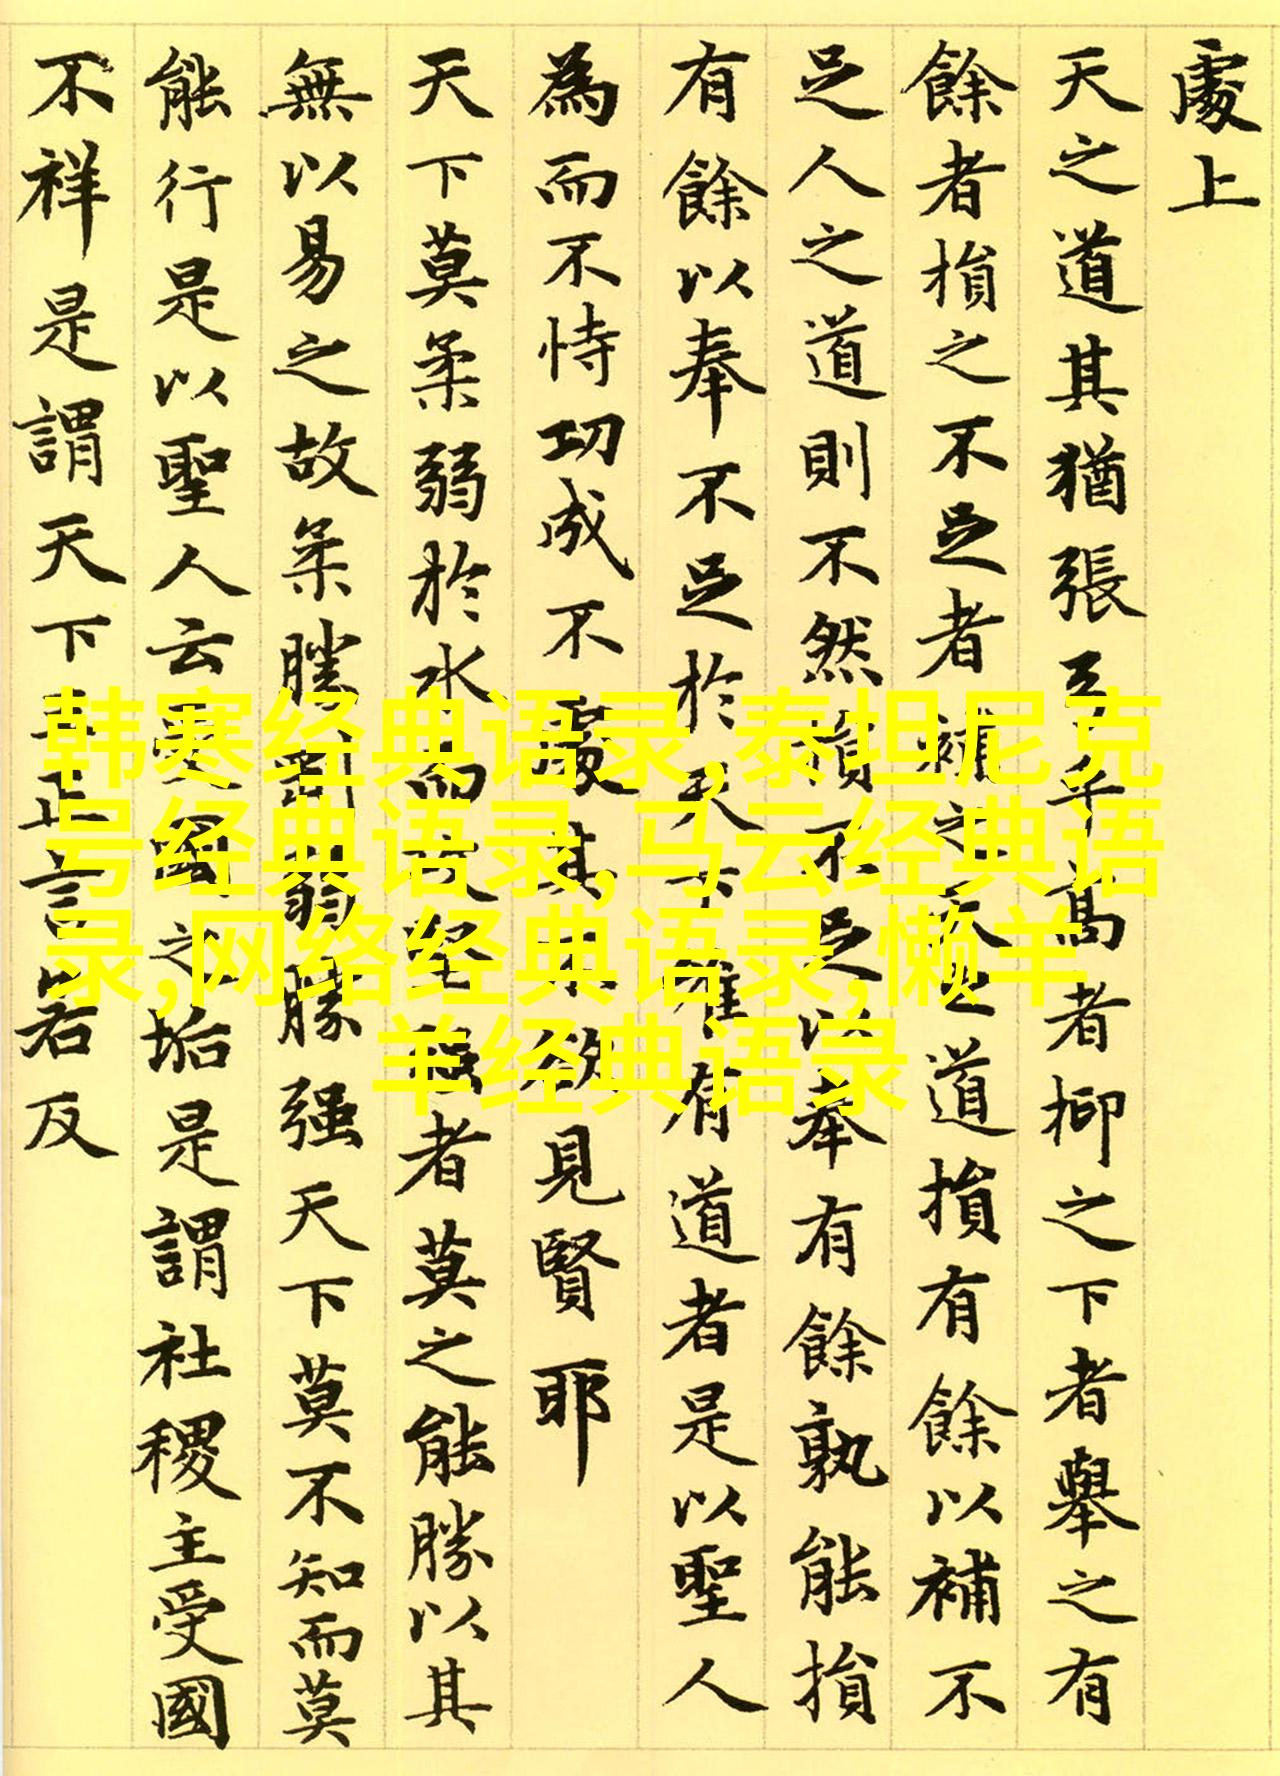 處上
天之道其猶張弓乎高者抑之下者舉之有
餘者損之不足者補之天之道損有餘以補不
足人之道則不然損不足以奉有餘孰能損
有餘以奉不足於天下唯有道者是以聖人
為而不恃功成不處其不欲見賢耶
天下莫柔弱於水而攻堅强者莫之能勝以其
無以易之故柔勝剛弱勝强天下莫不知而莫
能行是以聖人云受國之垢是謂社稷主受國
不祥是謂天下王正言若反
韩寒经典语录,泰坦尼克
号经典语录,马云经典语
录,网络经典语录,懒羊
羊经典语录